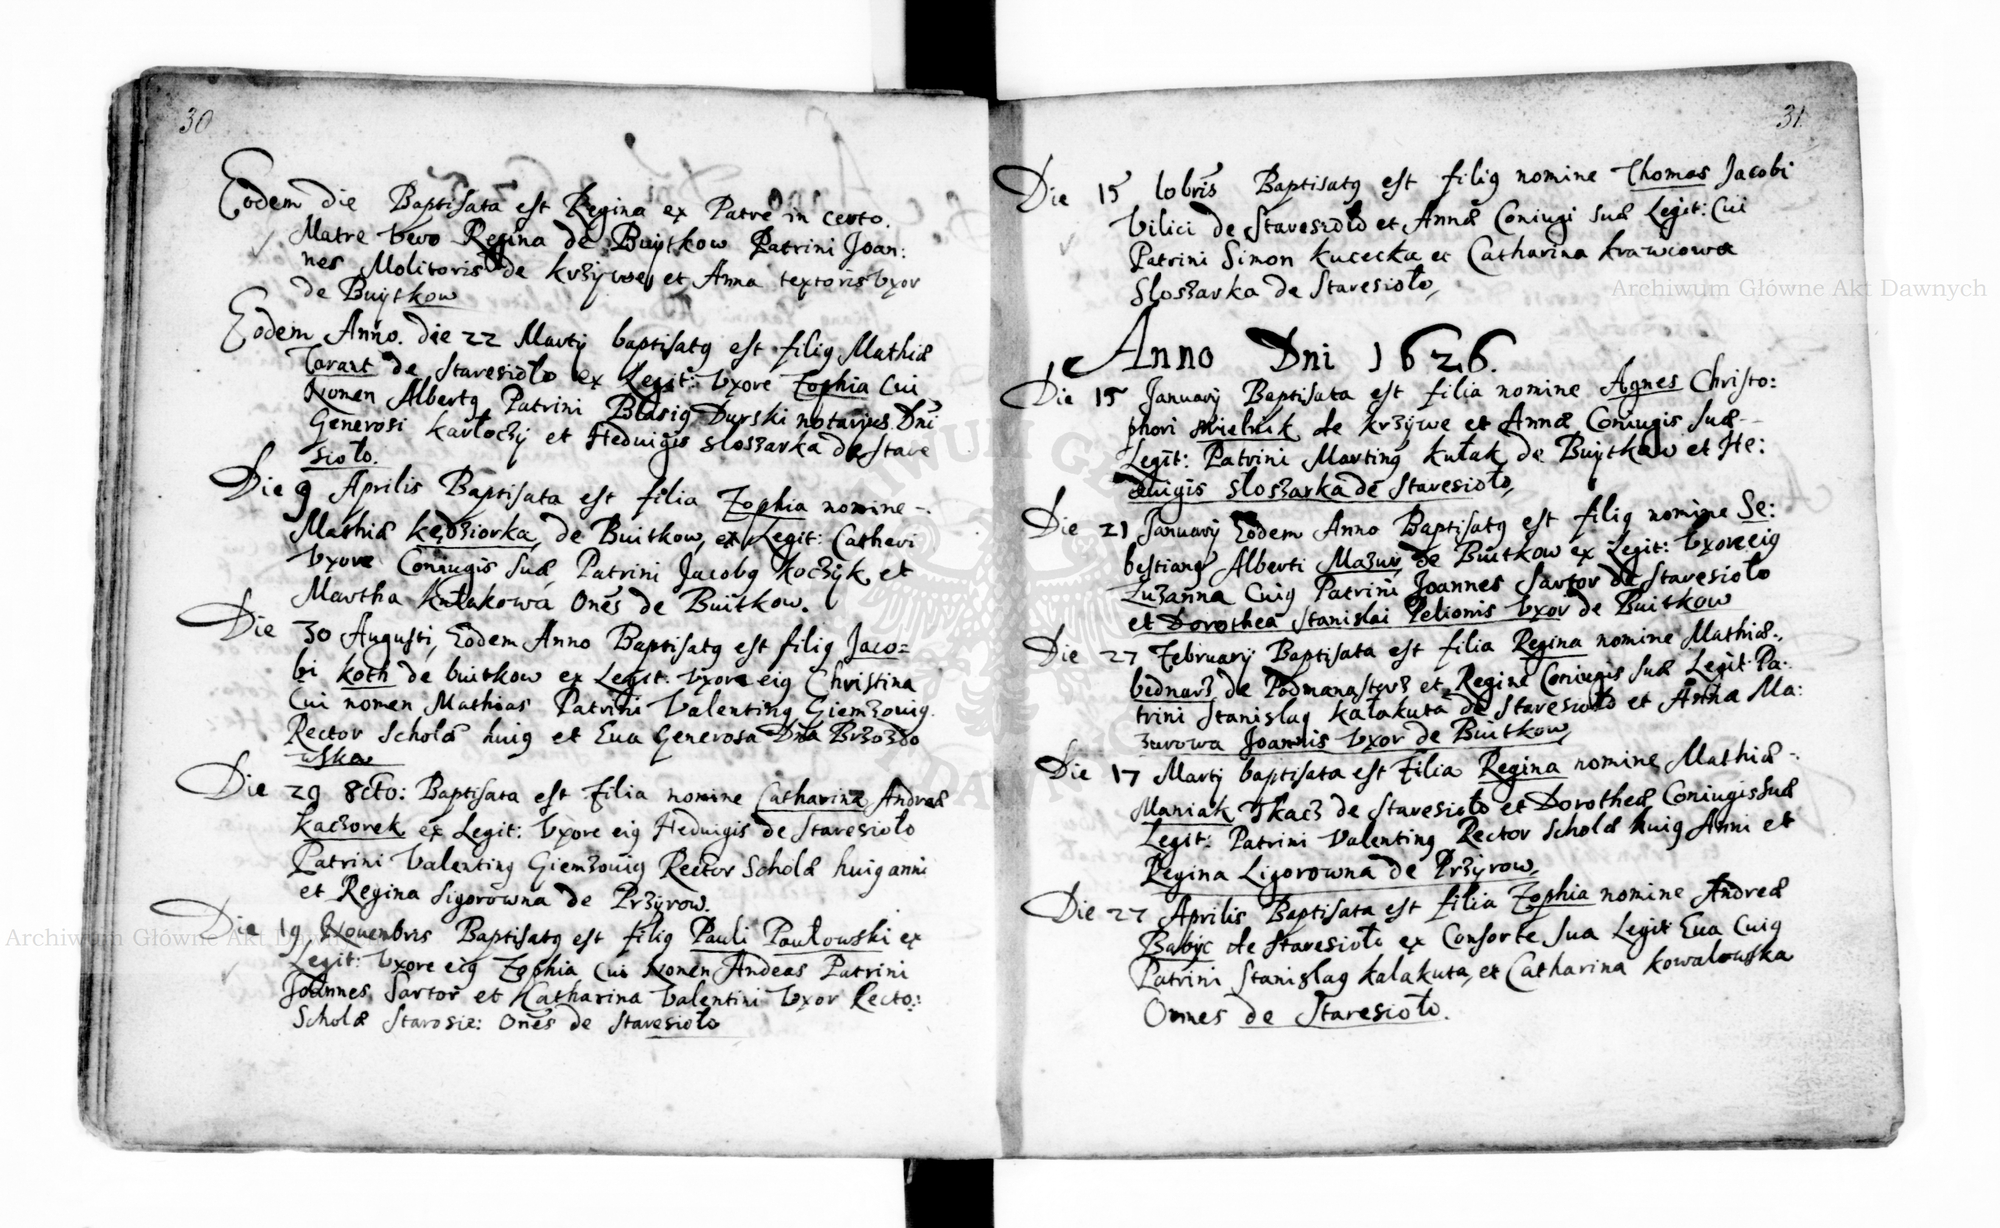 30
Eodem die Baptisata est Regina ex Patre in certo.
Matre vero Regina de Buytkow Patrini Joan:
nes Molitoris de krzywe, et Anna textoris Vxor
de Buytkow
Eodem Anno. die 22 Martij baptisatq est filiq Mathiæ
Tarant de Staresioło ex Legit: Vxore Zophia Cui
Nomen Albertq Patrini Blasiq Durski notarius Dni
Generosi karłoczy et Heduigis sloszarka de Stare
sioło.
Die 9 Aprilis Baptisata est filia Zophia nomine -.
Mathiæ kędziorka, de Buitkow, ex Legit: Catheri
Vxore Coniugis suæ, Patrini Jacobq koczyk et
Martha kułakowa Onēs de Buitkow.
Die 30 Augusti, Eodem Anno Baptisatq est filiq Jaco=
bi koth de buitkow ex Legit. Vxore eiq Christina
Cui nomen Mathias Patrini Valentinq Giemzouiq.
Rector Scholæ huiq et Eua Generosa Dna Brzozdo
wska
Die 29 8cto: Baptisata est Filia nomine Catharina Andreæ
kaczorek ex Legit: Vxore eiq Heduigis de Staresioło
Patrini Valentinq Giemzouiq Rector Scholæ huiq anni
et Regina Ligorowna de Przyrow.
Die 19 Nouembris Baptisatq est filiq Pauli Pawłowski ex
Legit: Vxore eiq Zophia Cui Nomen Andeas Patrini
Joannes Sartor et Katharina Valentini Vxor Recto:
Scholæ Starosie: Onēs de Staresioło
31
Die 15 Xobris Baptisatq est filiq nomine Thomas Jacobi
Vilici de Staresioło et Annæ Coniugi suæ Legit: Cui
Patrini Simon kucecka et Catharina krawiowa
Sloszarka de Staresioło,
Anno Dni 1626.
Die 15 January Baptisata est filia nomine Agnes Christo:
phori Mielnik de krzywe et Annæ Coniugis suæ -
Legit: Patrini Martinq kułak de Buytkow et He:
duigis sloszarka de Staresioło,
Die 21 January Eodem Anno Baptisatq est filiq nomine Se:
bestianq Alberti Mazur, de Buitkow ex Legit: Vxore eiq
Zuzanna Cuiq Patrini Joannes Sartor de Staresioło
et Dorothea Stanislai Pelionis Vxor de Buitkow
Die 27 February Baptisata est filia Regina nomine Mathiæ.
bednarz de Podmanasterz et Reginæ Coniugis suæ Legit. Pa:
trini Stanislaq kałakuta de Staresioło et Anna Ma:
zurowa Joannis Vxor de Buitkow,
Die 17 Martij baptisata est Filia Regina nomine Mathiæ -.
Maniak Tkacz de Staresioło et Dorotheæ Coniugis suæ
Legit: Patrini Valentinq Rector Scholæ huiq Anni et
Regina Ligorowna de Przyrow,
Die 27 Aprilis Baptisata est filia Zophia nomine Andreæ
Babyc de Staresioło ex Consorte sua Legit Eua Cuiq
Patrini Stanislaq kalakuta, et Catharina kowalowska
Omnes de Staresioło.
Archiwum Główne Akt Dawnych
Archiwum Główne Akt Dawnych